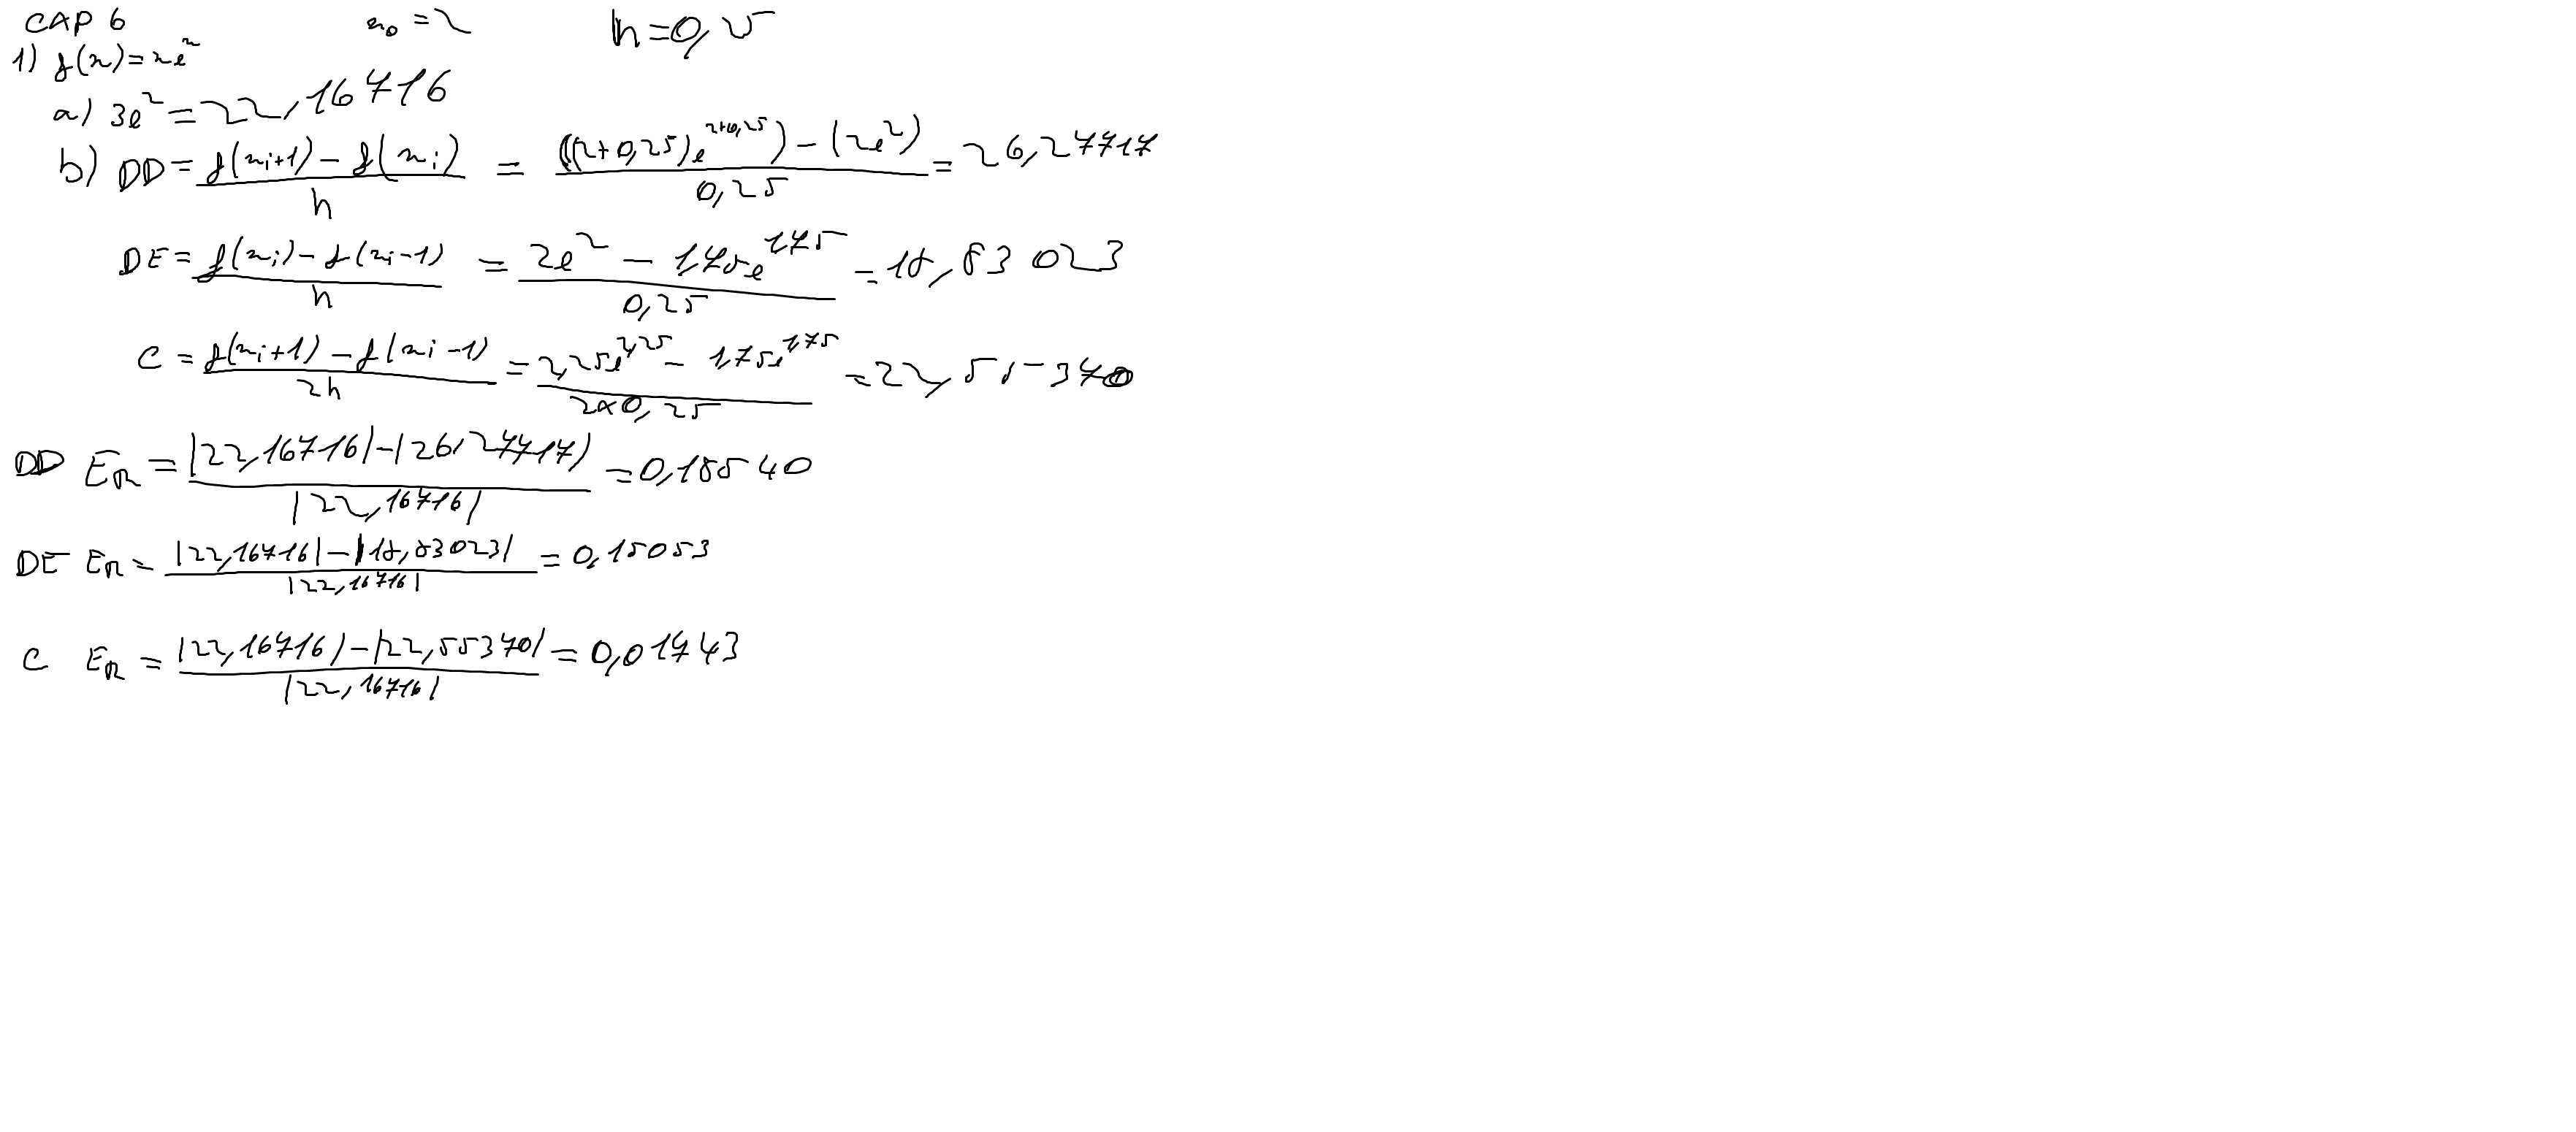 CAP 6 x₀ = 2 h = 0,25
1) f(x) = xe^x
a) 3e^2 = 22,16716
b) DD = (f(xi+1) - f(xi)) / h = (((2+0,25)e^(2+0,25)) - (2e^2)) / 0,25 = 26,27717
DE = (f(xi) - f(xi-1)) / h = (2e^2 - 1,75e^1,75) / 0,25 = 18,83023
C = (f(xi+1) - f(xi-1)) / 2h = (2,25e^2,25 - 1,75e^1,75) / 2×0,25 = 22,55370
DD ER = (|22,16716| - |26,27717|) / |22,16716| = 0,18540
DE ER = (|22,16716| - |18,83023|) / |22,16716| = 0,15053
C ER = (|22,16716| - |22,55370|) / |22,16716| = 0,01743